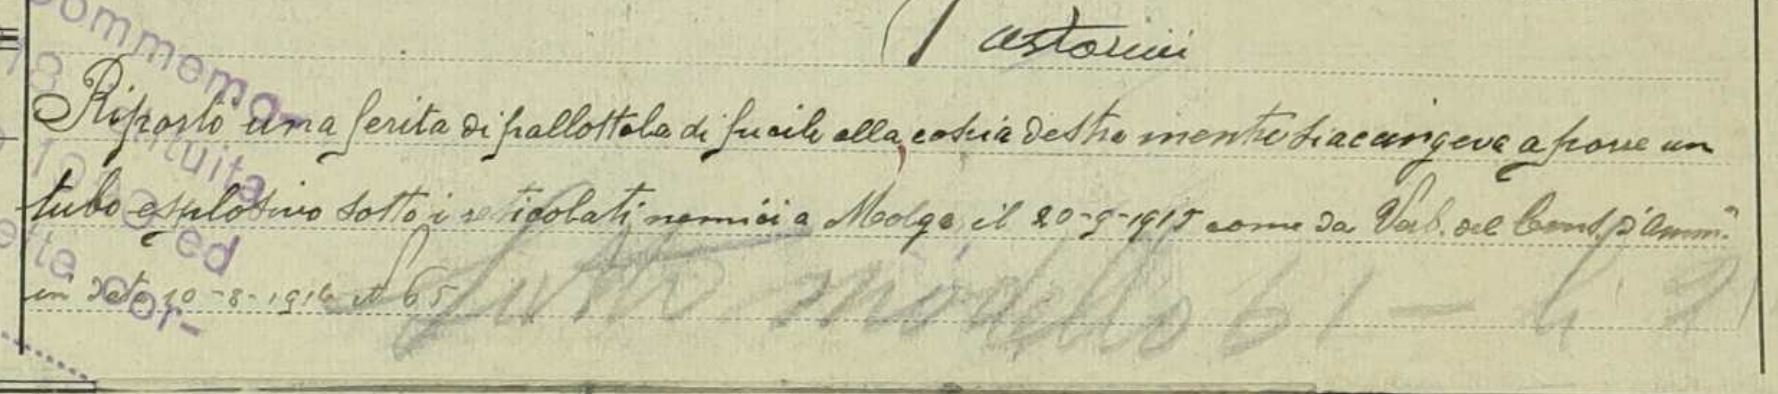 Pastorini
Riportò una ferita di pallottola di fucile alla coscia destra mentre si accingeva a porre un
tubo esplosivo sotto i reticolati nemici a Molga il 20-9-1915 come da Verb. del Cons. d'Amm.
in data 10-8-1916 N 65
Fatto modello 61 -
commemo-
18
gratuita
ed
cor-